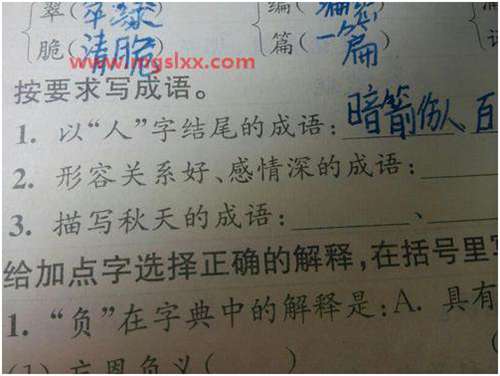 翠(翠绿 编(
脆(清脆) 篇(一篇)
www.mgslxx.com
按要求写成语。
1. 以“人”字结尾的成语:暗箭伤人、百
2. 形容关系好、感情深的成语:
3. 描写秋天的成语: 、
给加点字选择正确的解释,在括号里写
1. “负”在字典中的解释是:A. 具有
(1) 忘恩负义( )